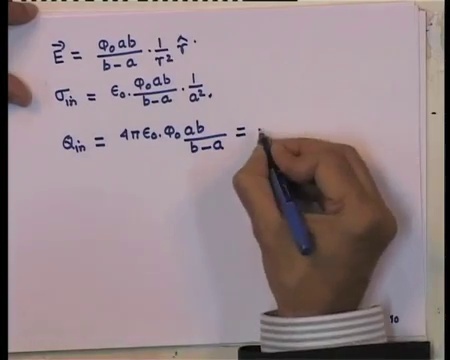 E⃗ = φ₀ab/(b−a) · 1/r² r̂.
σin = ε₀. φ₀ab/(b−a) · 1/a².
Qin = 4πε₀. φ₀ ab/(b−a) =
10